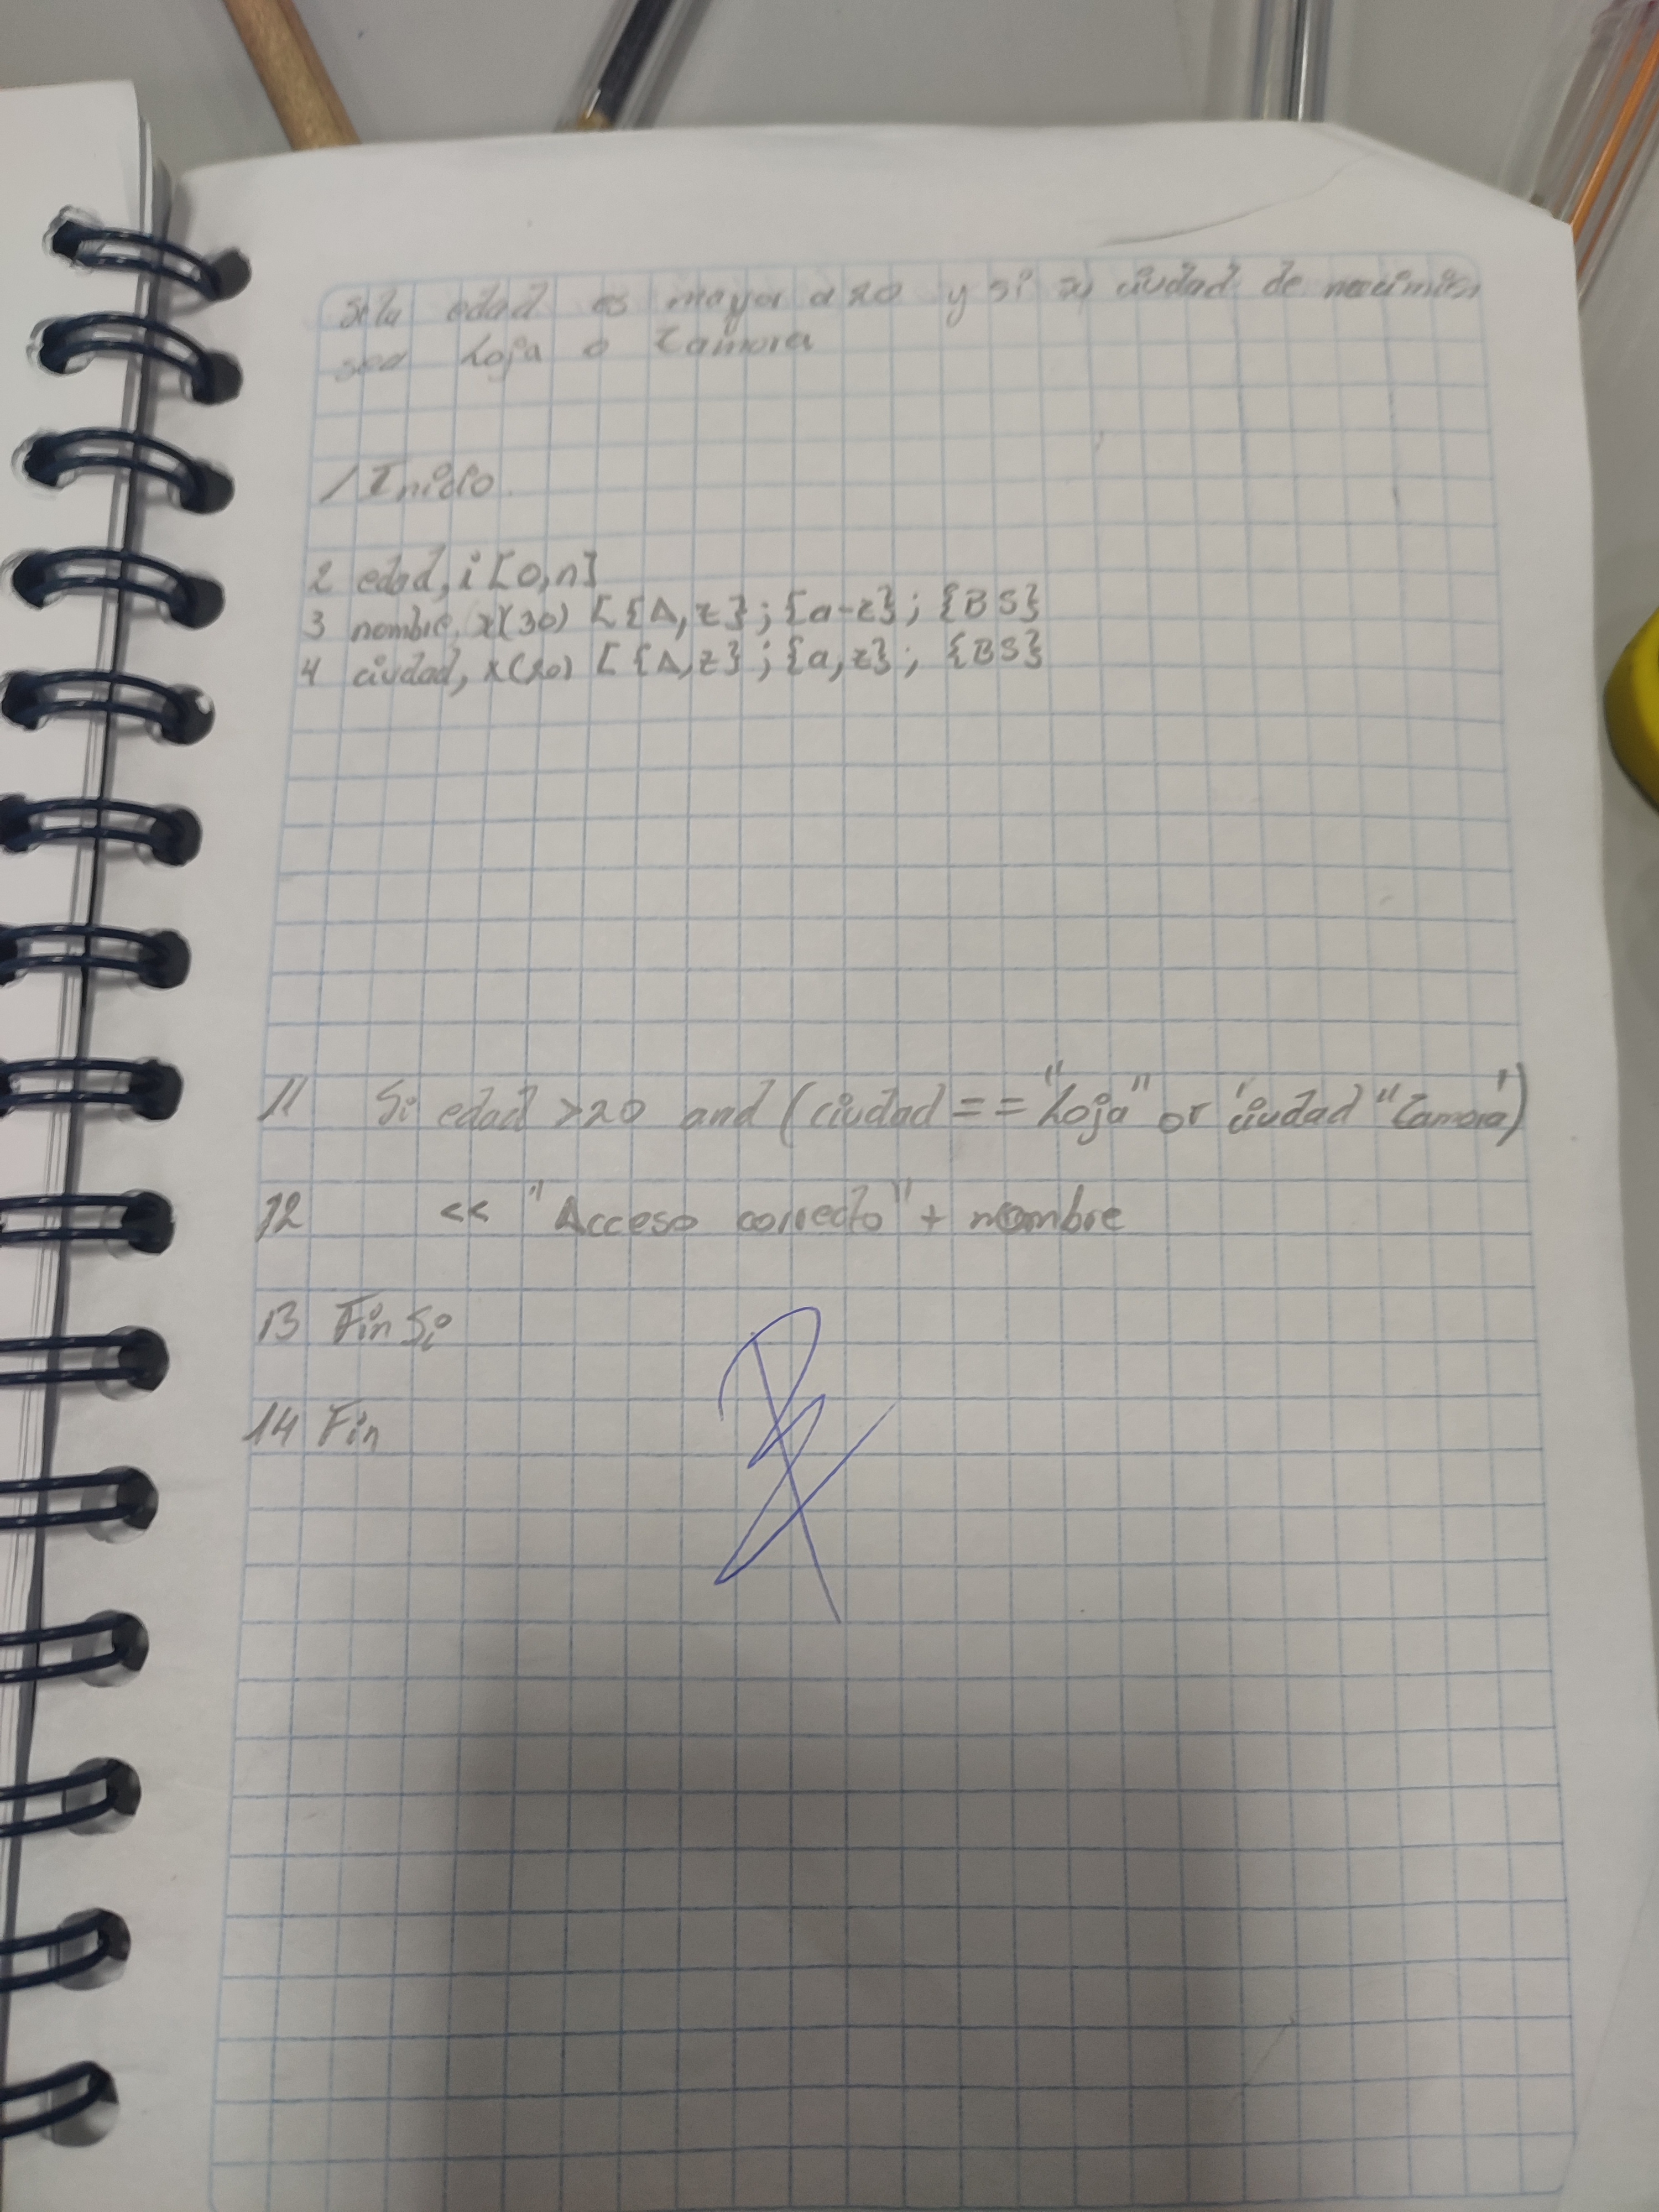 si la edad es mayor a 20 y si su ciudad de nacimien
sea Loja o Zamora
1 Inicio.
2 edad, i [0,n]
3 nombre, x(30) [{A,z}; {a-z}; {BS}
4 ciudad, x(20) [{A,z}; {a,z}; {BS}
11 Si edad >20 and (ciudad == "Loja" or ciudad "Zamora")
12 << "Acceso correcto" + nombre
13 Fin Si
14 Fin